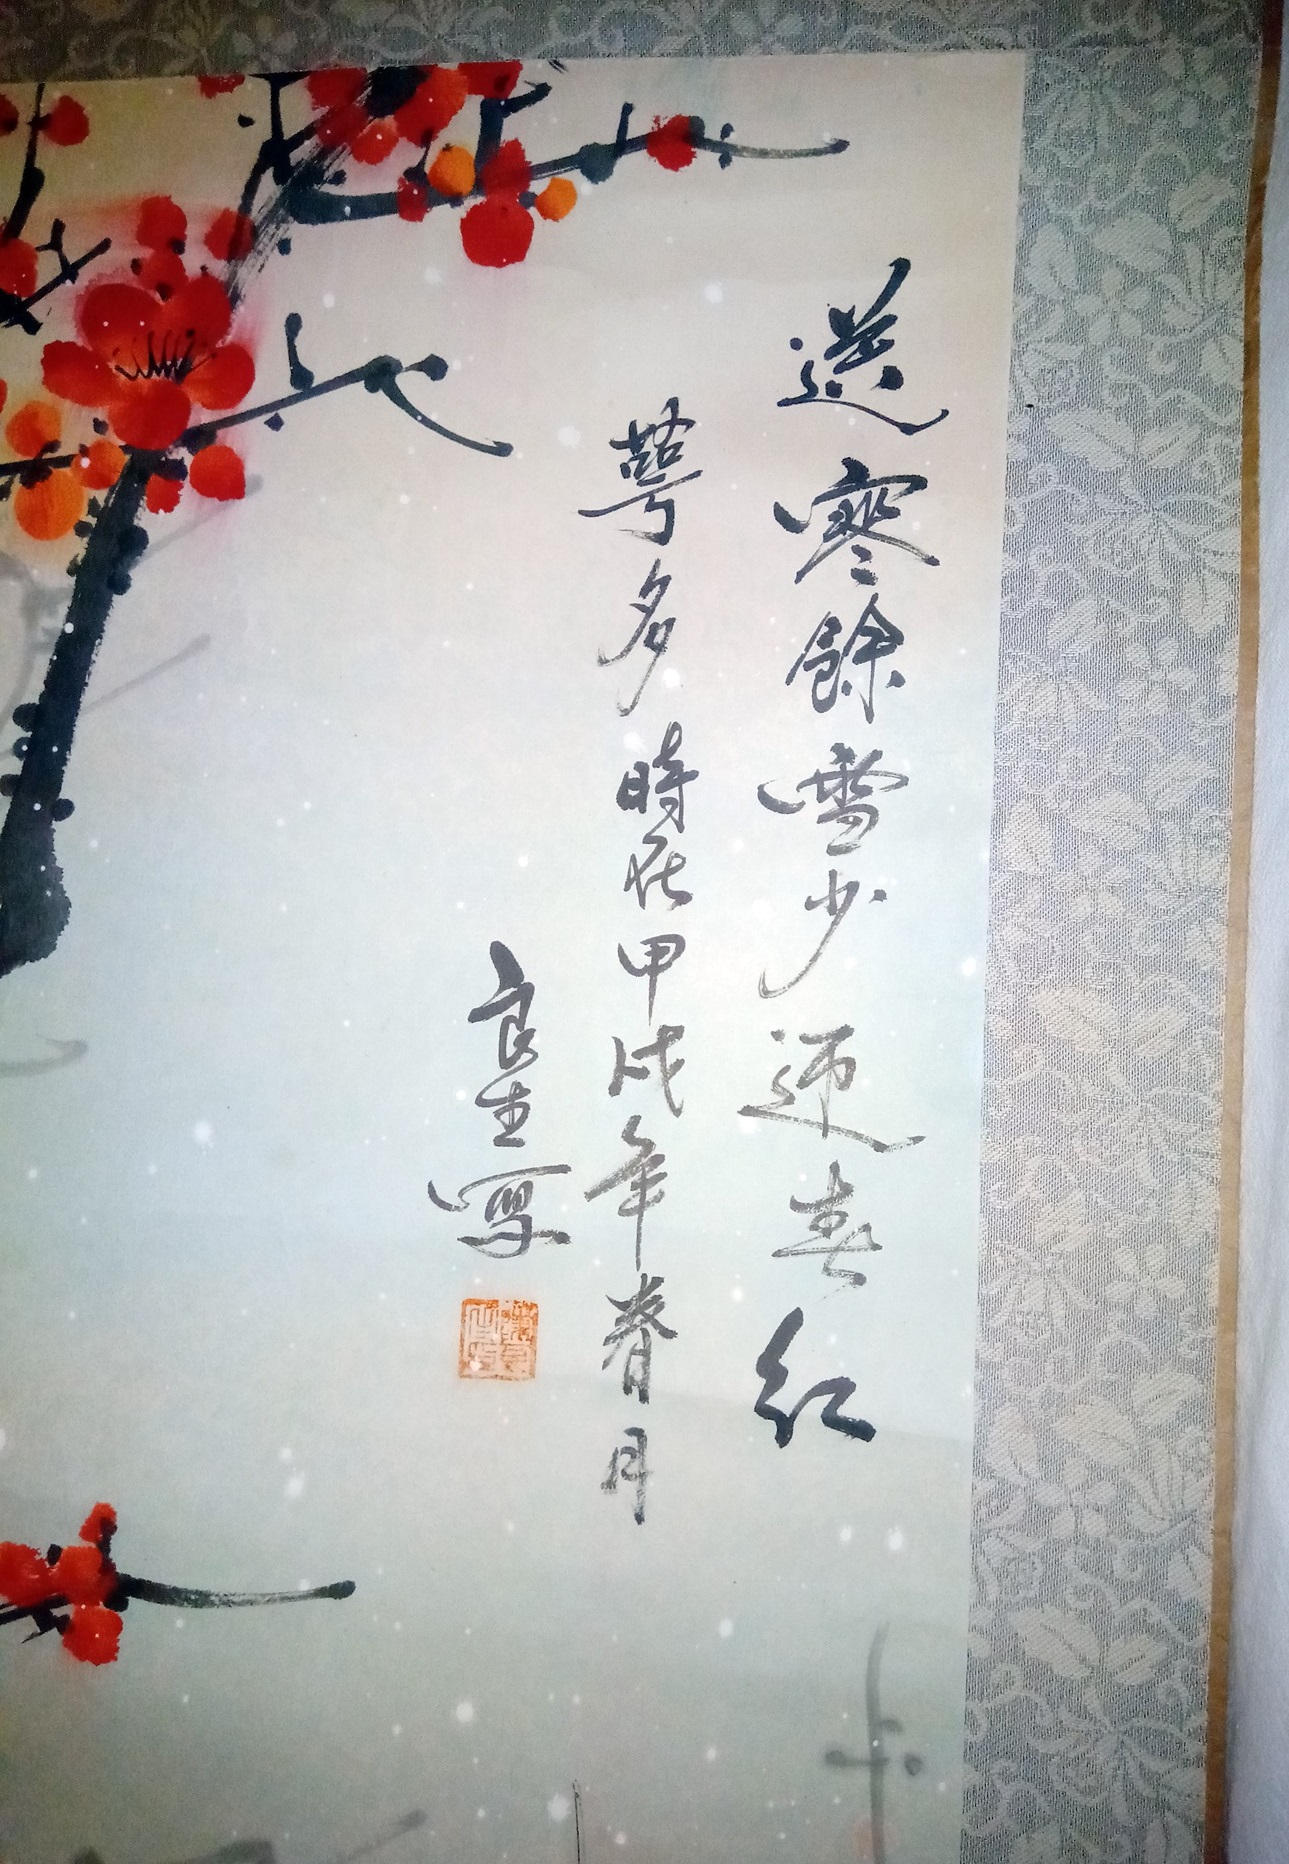 送寒餘雪少迎春紅
萼多時在甲戌年春月
良生寫